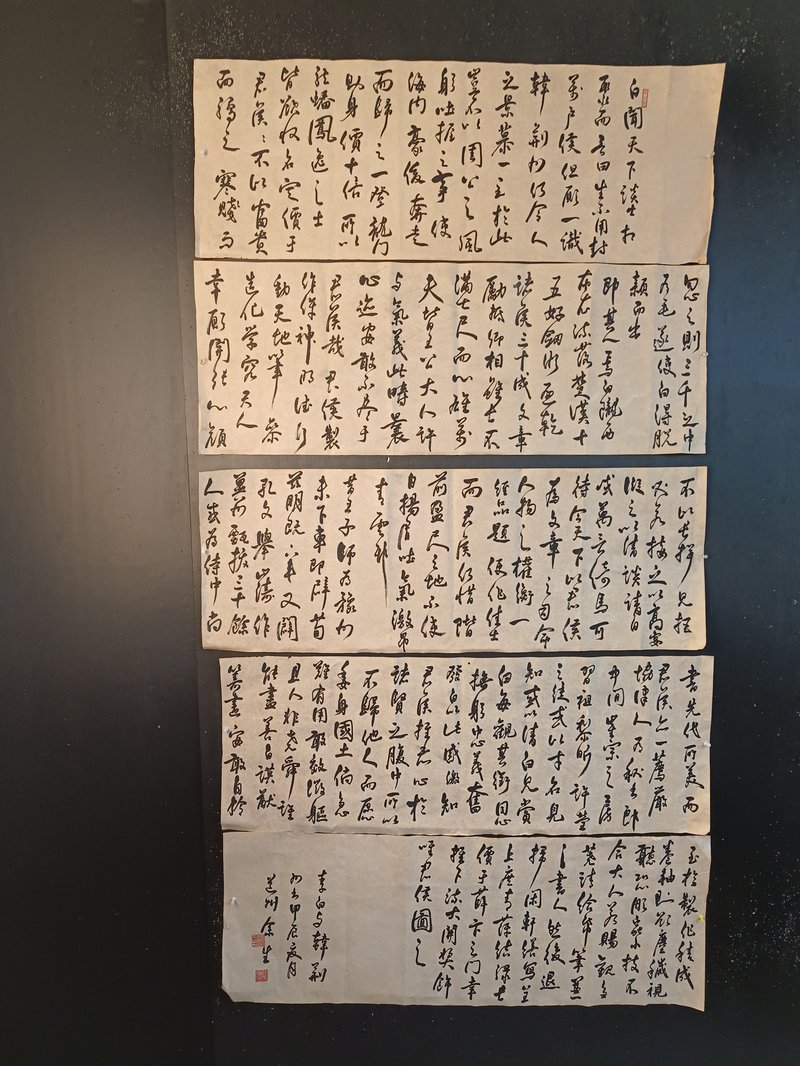 白闻天下谈士相
聚而言曰生不用封
萬户侯但願一識
韓荆州何令人
之景慕一至於此
豈不以周公之風
躬吐握之事使
海内豪俊奔走
而歸之一登龍门
則身價十倍所以
龍蟠鳳逸之士
皆欲收名定價于
君侯君侯不以富貴
而驕之寒賤而
忽之則三千之中
有毛遂使白得脱
颖而出
即其人焉白隴西
布衣流落楚漢十
五好劍術遍乾
諸侯三十成文章
歷抵卿相雖长不
满七尺而心雄萬
夫皆王公大人許
与氣義此疇曩
心迹安敢不尽于
君侯哉君侯製
作侔神明德行
動天地笔参
造化学究天人
幸願開張心颜
不以长揖見拒
必若接之以高宴
縱之以清談請日
试萬言倚馬可
待今天下以君侯
为文章之司命
人物之權衡一
經品題便作佳士
而君侯何惜階
前盈尺之地不使
白揚眉吐氣激昂
青雲耶
昔王子师为豫州
未下車即辟荀
慈明既下車又辟
孔文舉山濤作
冀州甄拔三十餘
人或为侍中尚
書先代所美而
君侯亦一薦嚴
协律入为秘書郎
中间崔宗之房
習祖黎昕許莹
之徒或以才名見
知或以清白見賞
白每觀其銜恩
撫躬忠義奮
發白以此感激知
君侯推赤心於
諸賢之腹中所以
不歸他人而愿
委身國士倘急
難有用敢效微軀
且人非尧舜誰
能盡善白謨猷
籌畫安敢自矜
至於製作積成
卷軸則欲塵穢視
聽恐雕虫小技不
合大人若賜觀刍
荛請給纸筆兼
之書人然後退
掃闲軒缮寫呈
上庶青萍結綠长
價于薛卞之门幸
推下流大開奨飾
唯君侯圖之
李白与韓荆
州書甲辰夏月
道州余生